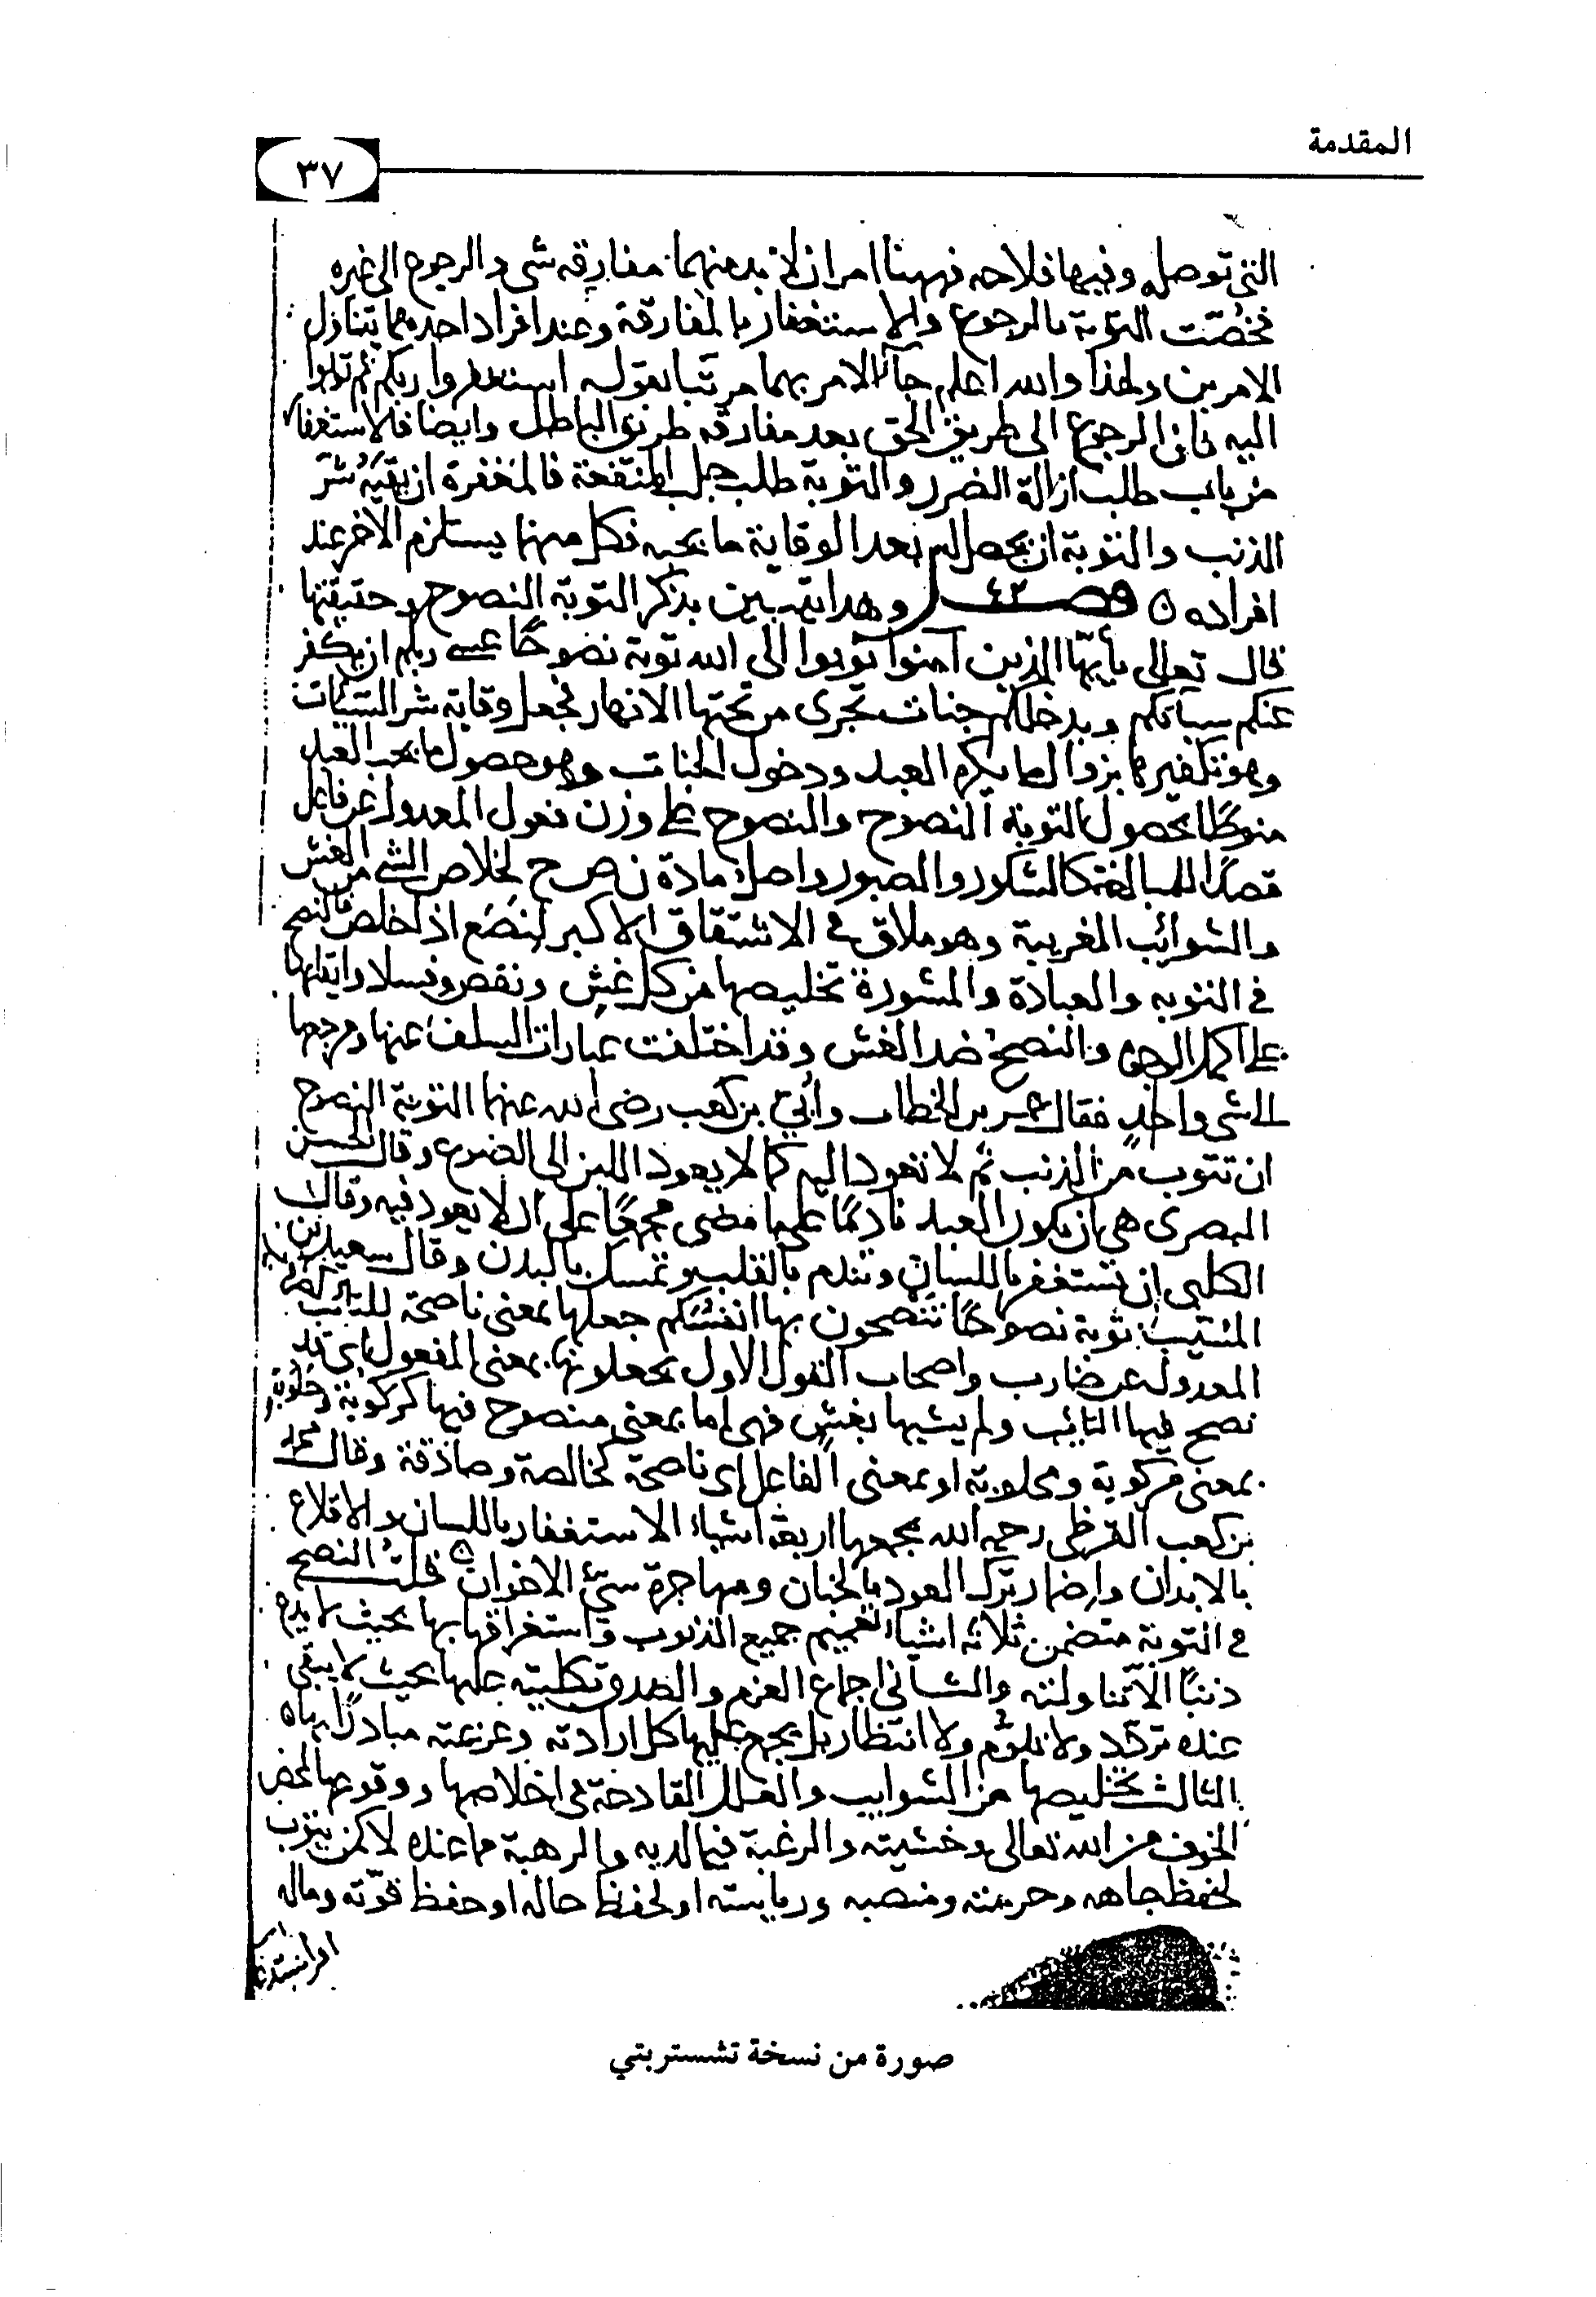 المقدمة
٣٧
التى توصله وفيها فلاحه فههنا امران لا بد منهما مفارقه شى والرجوع الى غيره
فخصّت التوبة بالرجوع والاستغفار بالمفارقة وعند افراد احدهما يتناول
الامرين ولهذا والله اعلم جآء الامر بهما مرتبا بقوله استغفروا ربكم ثم توبوا
اليه فانه الرجوع الى طريق الحق بعد مفارقه طريق الباطل وايضا فالاستغفار
من باب طلب ازالة الضرر والتوبة طلب جلب المنفعة فالمغفرة ان يقيَه شرّ
الذنب والتوبة ان يحصل له بعد الوقاية ما يحبه فكل منهما يستلزم الاخر عند
افراده ٥ فصل وهذا يتبين بذكر التوبة النصوح وحقيقتها
قال تعالى يأيّها الذين آمنوا توبوا الى الله توبة نصوحًا عسى ربكم ان يكفر
عنكم سيآتكم ويدخلكم جنات تجرى من تحتها الانهار فجعل وقاية شر السيئات
وهو تكفيرها بزوال ما يكره العبد ودخول الجنات وهو حصول ما يحب العبد
منوطًا بحصول التوبة النصوح والنصوح على وزن فعول المعدول عن فاعل
قصدًا للمبالغة كالشكور والصبور واصل مادة ن ص ح لخلاص الشى من الغش
والشوائب الغريبة وهو ملاق فى الاشتقاق الاكبر لنصَع اذا خلص فالنصح
فى التوبه والعبادة والمشورة تخليصها من كل غش ونقص وفساد وايقاعها
على اكمل الوجوه والنصح ضد الغش وقد اختلفت عبارات السلف عنها ومرجعها
الى شى واحدٍ فقال عمر بن الخطاب وأُبيّ بن كعب رضى الله عنهما التوبة النصوح
ان تتوب من الذنب ثم لا تعود اليه كما لا يعود اللبن الى الضرع وقال الحسن
البصرى هى ان يكون العبد نادمًا على ما مضى مجمعًا على ان لا يعود فيه وقال
الكلبى ان تستغفر باللسان وتندم بالقلب وتمسك بالبدن وقال سعيد بن
المسيّب توبة نصوحًا تنصحون بها انفسكم جعلها بمعنى ناصحة للتائب كضروب
المعدول عن ضارب واصحاب القول الاول يجعلونها بمعنى المفعول اى قد
نصح فيها التائب ولم يشبها بغش فهى اما بمعنى منصوح فيها كركوبة وحلوبة
بمعنى مركوبة ومحلوبة او بمعنى الفاعل اى ناصحة كخالصة وصادقة وقال محمد
بن كعب القرظى رحمه الله يجمعها اربعة اشياء الاستغفار باللسان والاقلاع
بالابدان واضمار ترك العود بالجنان ومهاجرة سئ الاخوان ٥ قلت النصح
فى التوبة متضمن ثلاثه اشياء تعميم جميع الذنوب واستغراقها بها بحيث لا يدع
ذنبًا الا تناولته والثانى اجماع العزم والصدق بكليته عليها بحيث لا يبقى
عنده تردّد ولا تلوّم ولا انتظار بل يجمع عليها كل ارادته وعزيمته مبادرًا بها
الثالث تخليصها من الشوايب والعلل القادحة فى اخلاصها ووقوعها لمحض
الخوف من الله تعالى وخشيته والرغبة فيما لديه والرهبة مما عنده لا كمن يتوب
لحفظ جاهه وحرمته ومنصبه ورياسته او لحفظ حاله او حفظ قوّته وماله
صورة من نسخة تشستربتي